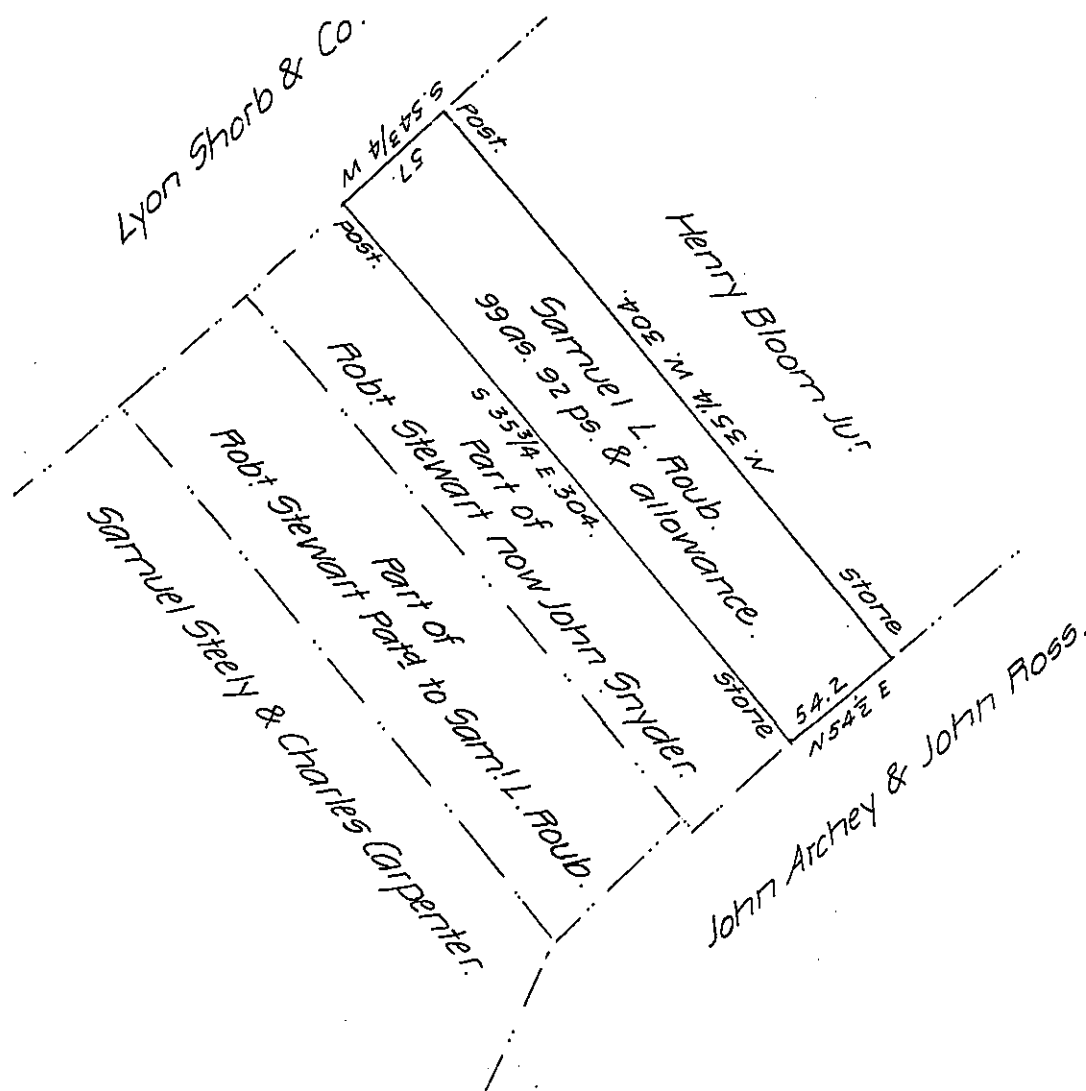 Lyon Shorb & Co.
S. 54 3/4 W
57.
Post.
Post.
Henry Bloom Jur.
N. 35 1/4 W. 304.
Samuel L. Roub.
99 as. 92 ps. & allowance.
S 35 3/4 E. 304.
Part of
Robt Stewart now John Snyder.
Part of
Robt Stewart Patd to Saml. L. Roub.
Samuel Steely & Charles Carpenter.
Stone
Stone
54.2
N 54 1/2 E
John Archey & John Ross.